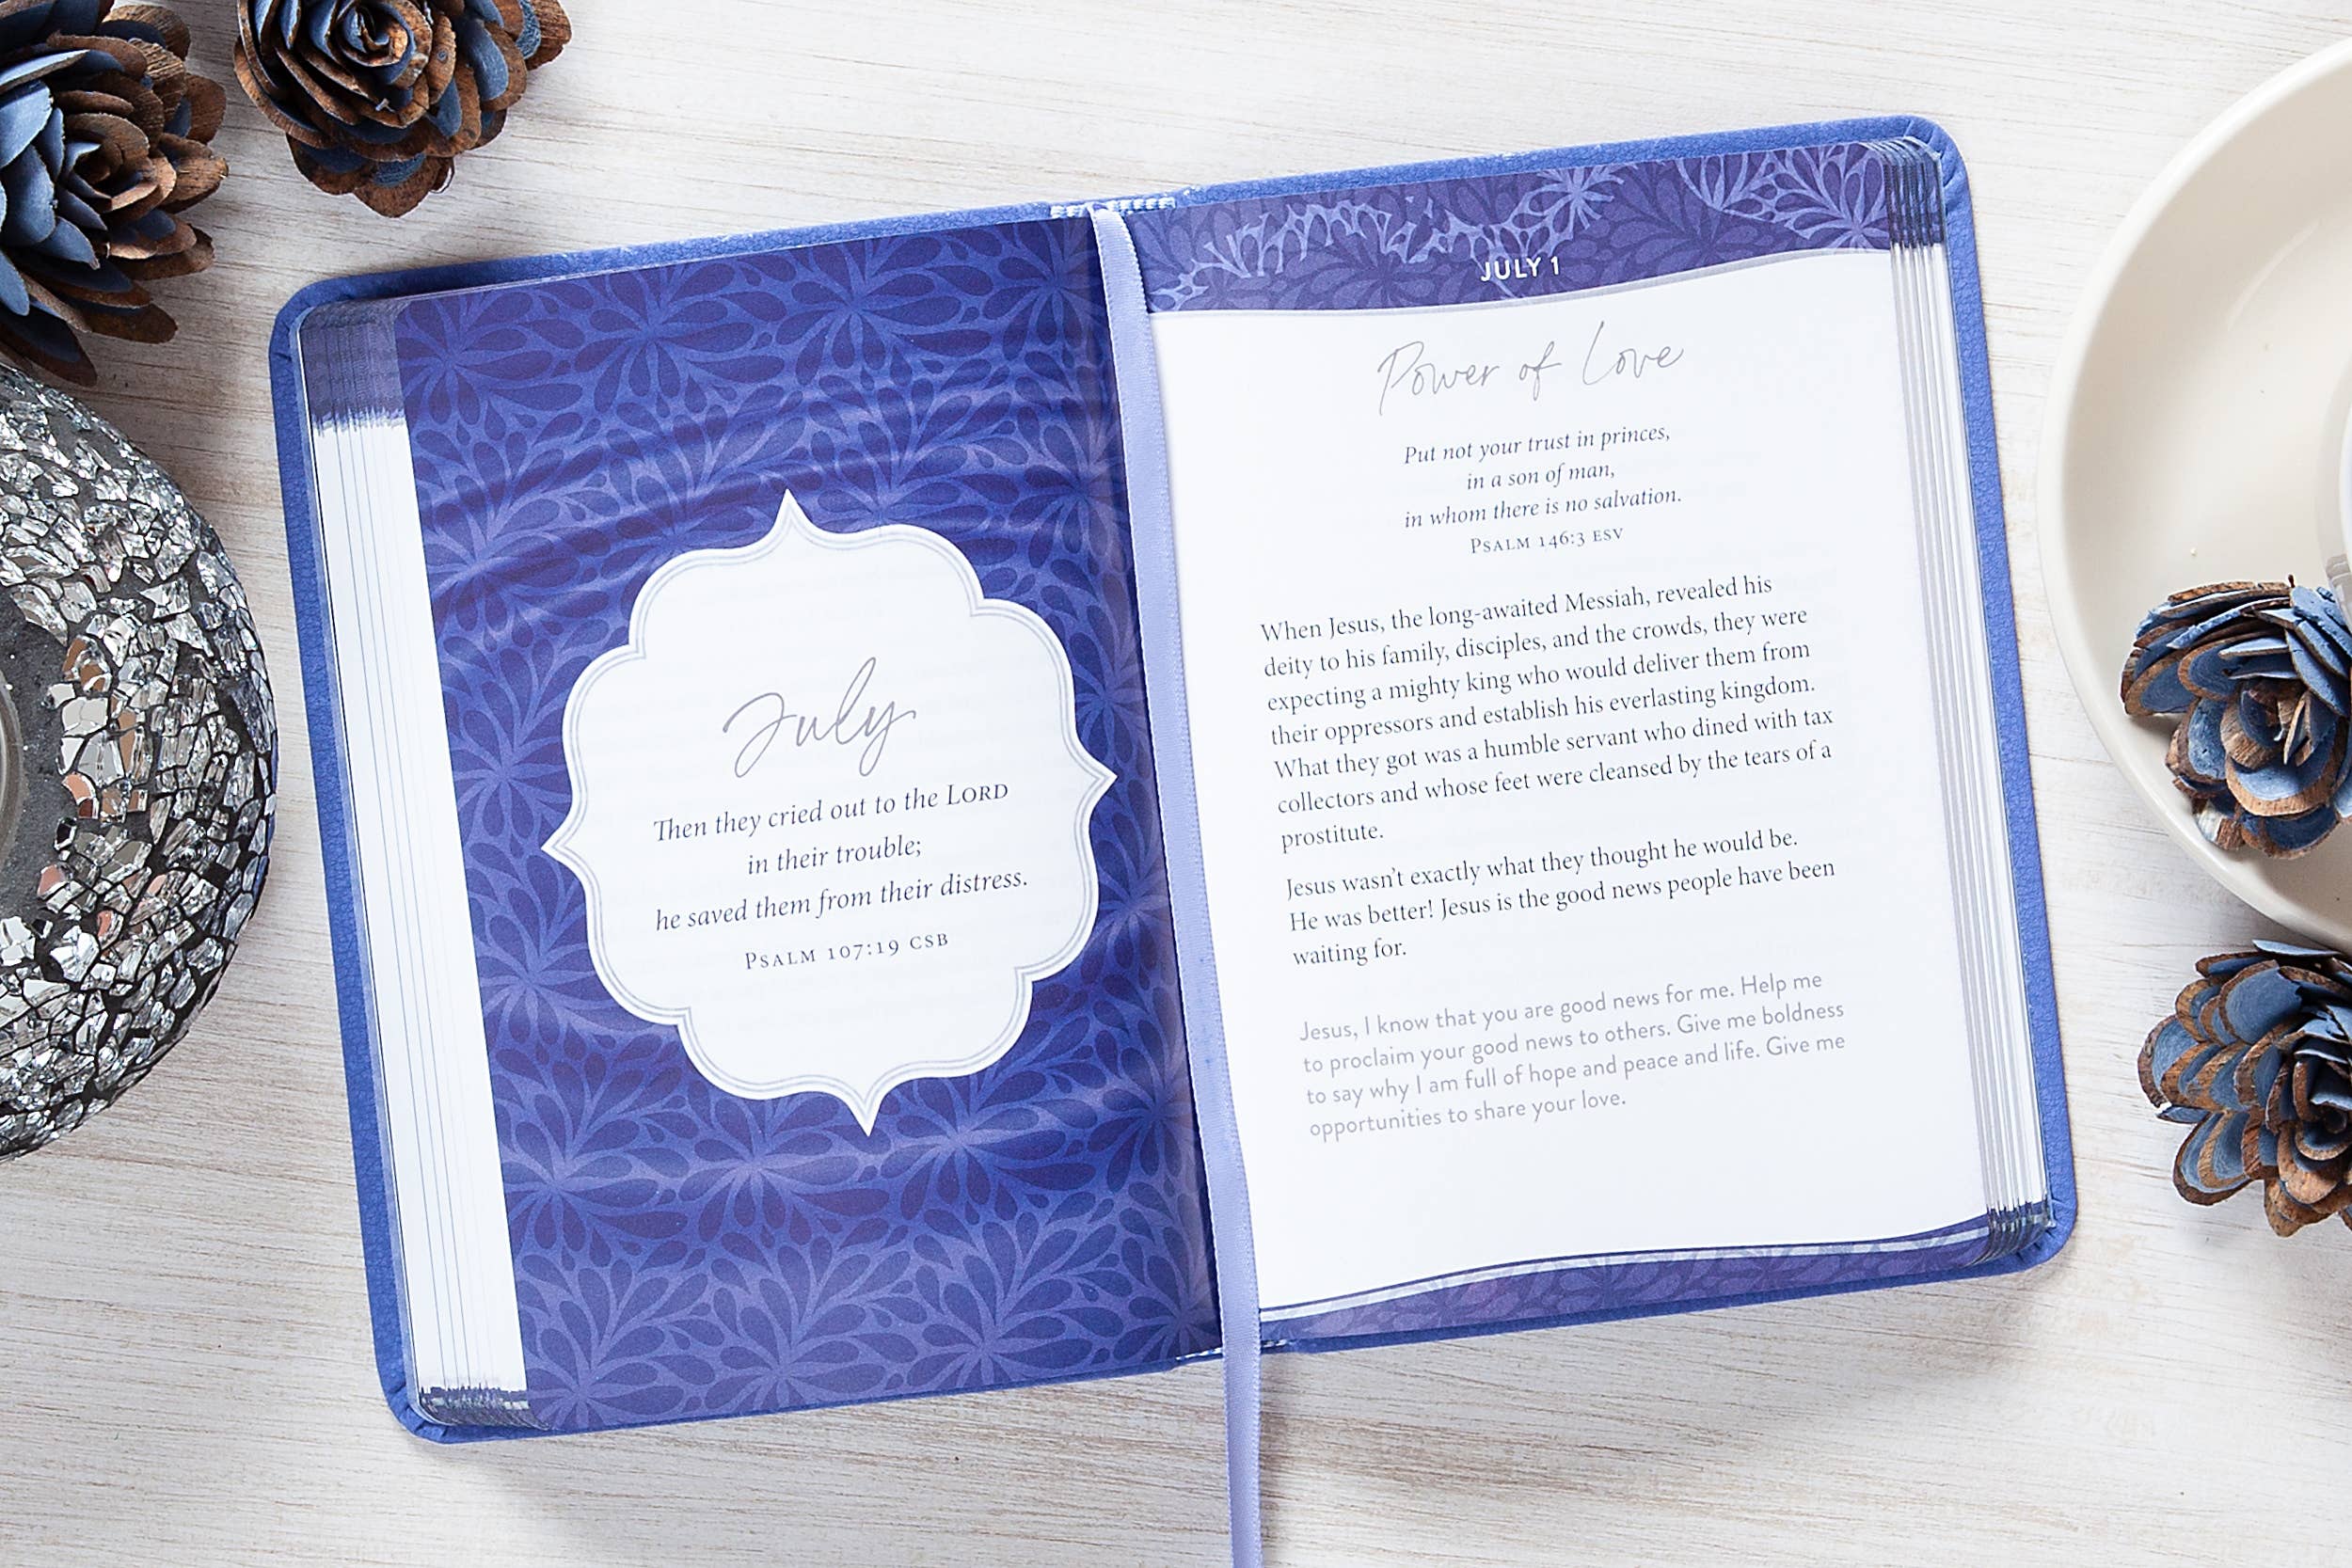 July
Then they cried out to the LORD
in their trouble;
he saved them from their distress.
PSALM 107:19 CSB
JULY 1
Power of Love
Put not your trust in princes,
in a son of man,
in whom there is no salvation.
PSALM 146:3 ESV
When Jesus, the long-awaited Messiah, revealed his
deity to his family, disciples, and the crowds, they were
expecting a mighty king who would deliver them from
their oppressors and establish his everlasting kingdom.
What they got was a humble servant who dined with tax
collectors and whose feet were cleansed by the tears of a
prostitute.
Jesus wasn't exactly what they thought he would be.
He was better! Jesus is the good news people have been
waiting for.
Jesus, I know that you are good news for me. Help me
to proclaim your good news to others. Give me boldness
to say why I am full of hope and peace and life. Give me
opportunities to share your love.